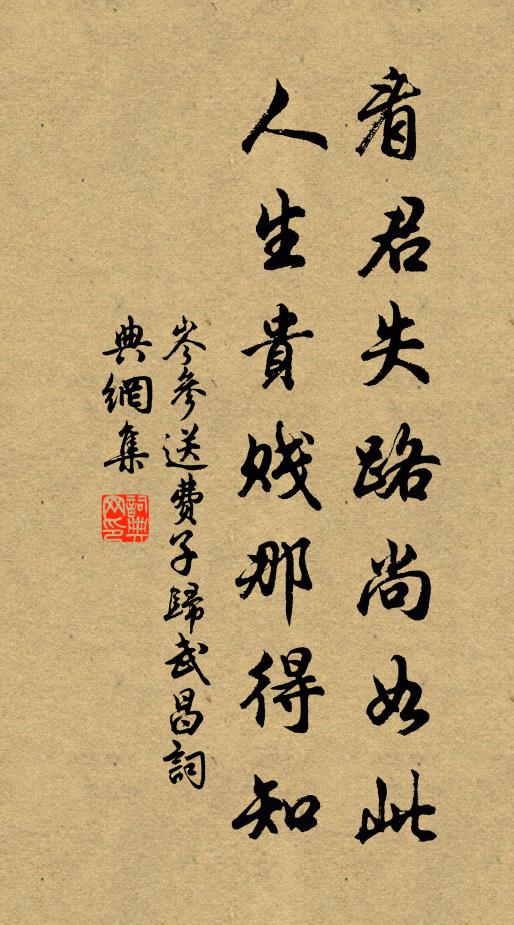 看君失路尚如此
人生貴賤那得知
岑參送費子歸武昌詞
典網集
詞典網印